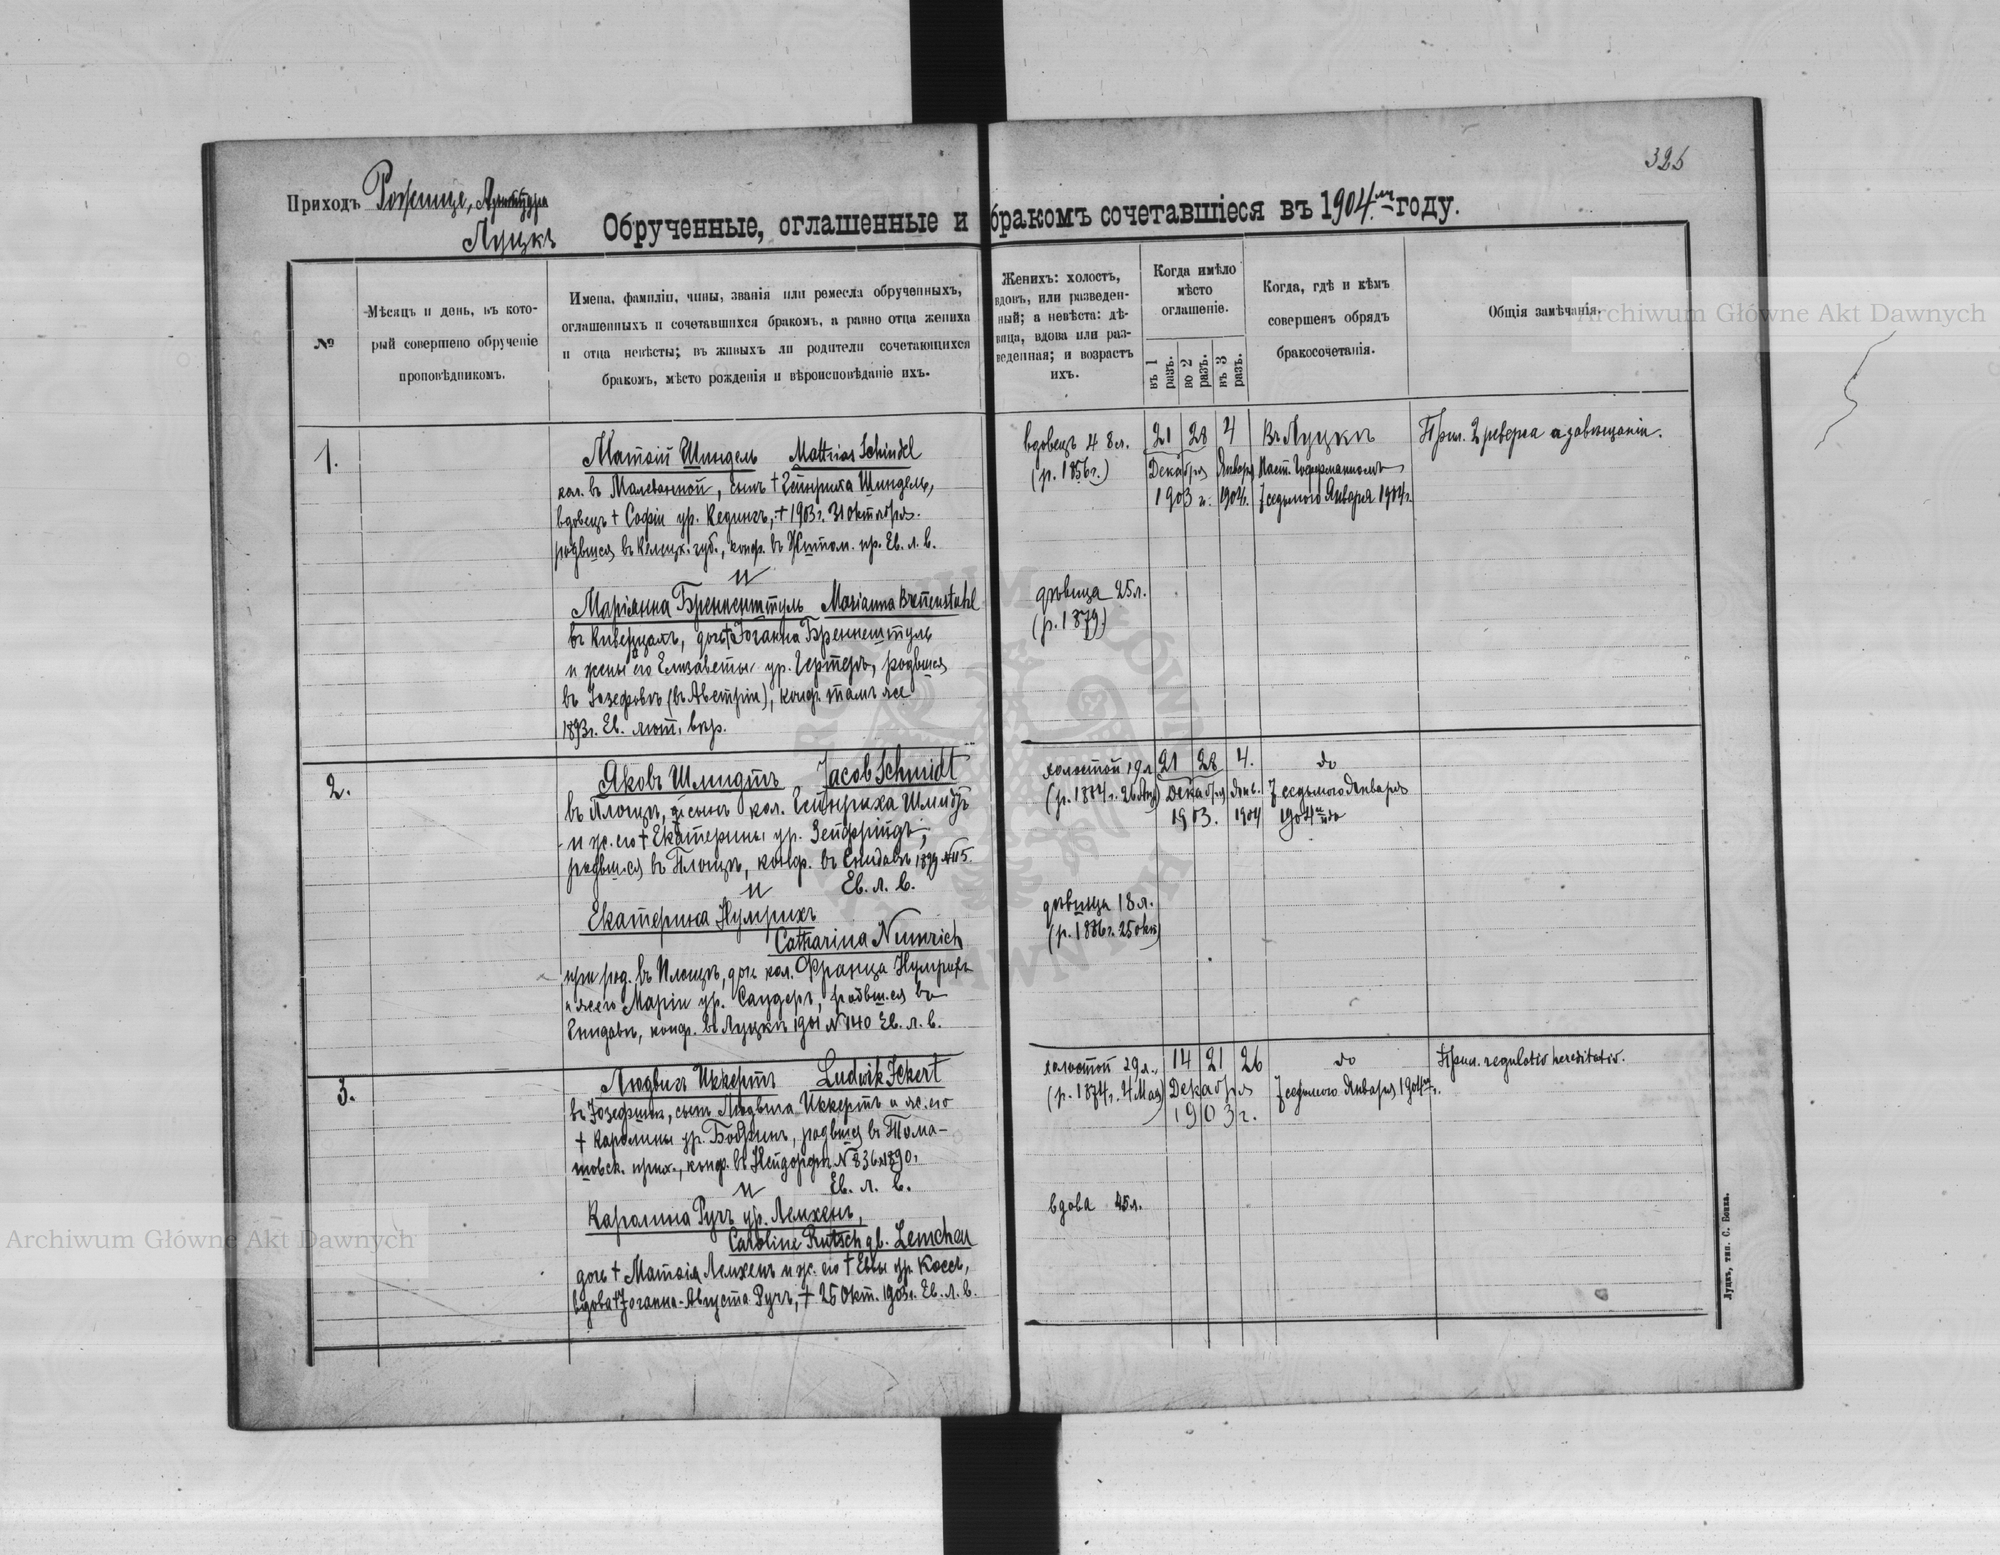 325
Приходъ Рожище,
Луцкъ
Обрученные, оглашенные и бракомъ сочетавшіеся въ 1904.мъ году.
№
Мѣсяцъ и день, въ кото-
рый совершено обрученіе
проповѣдникомъ.
Имена, фамиліи, чины, званія или ремесла обрученныхъ,
оглашенныхъ и сочетавшихся бракомъ, а равно отца жениха
и отца невѣсты; въ живыхъ ли родители сочетающихся
бракомъ, мѣсто рожденія и вѣроисповѣданіе ихъ.
Женихъ: холостъ,
вдовъ, или разведен-
ный; а невѣста: дѣ-
вица, вдова или раз-
веденная; и возрастъ
ихъ.
Когда имѣло
мѣсто
оглашеніе.
въ 1 разъ.
во 2 разъ.
въ 3 разъ.
Когда, гдѣ и кѣмъ
совершенъ обрядъ
бракосочетанія.
Общія замѣчанія.
1.
Матвій Шиндель Mathias Schindel
кол. въ Малеванной, сынъ + Гейнриха Шиндель,
вдовецъ + Софіи ур. Кедингъ, + 1903 г. 31 октября.
родвшся въ Келецк. губ., конф. въ Житом. пр. Ев. л. в.
и
Маріанна Бренненштуль Marianna Brennenstuhl
въ Киверцахъ, дочь + Іоганна Бренненштуль
и жены его Елизаветы ур. Гертеръ, родвшся
въ Іозефовѣ (въ Австріи), конф. тамъ же
1893 г. Ев. лют. вѣр.
вдовецъ 48 л.
(р. 1856 г.)
дѣвица 25 л.
(р. 1879)
21 28 4
Декабря Января
1903 г. 1904 г.
Въ Луцкѣ
Паст.
7 седьмого Января 1904 г.
Прил. 2 реверса
2.
Яковъ Шмидтъ Jacob Schmidt
въ Площѣ, сынъ кол. Гейнриха Шмидтъ
и ж. его + Екатерины ур. Зейфридъ,
родвшся въ Площѣ, конф. въ 1899 № 115.
и Ев. л. в.
Екатерина Нумрихъ
Catharina Numrich
при род. въ Площѣ, дочь кол. Франца Нумрихъ
и ж. его Маріи ур. Саудеръ, родвшся въ
конф. въ Луцкѣ 1901 № 140 Ев. л. в.
холостой 19 л.
дѣвица 18 л.
(р. 1886 г. 25 окт)
21 28 4.
Декабря Янв.
1903. 1904
do
7 седьмого Января
1904
3.
Людвигъ Иккертъ Ludwik Ickert
въ Іозефинѣ, сынъ Людвига Иккертъ и ж. его
+ Каролины ур. родвшся въ Тома-
шовск. прих., конф. въ Нейдорфѣ № 836 1890.
и Ев. л. в.
Каролина Ручъ ур. Лемхенъ,
Caroline Rutsch gb. Lemchen
дочь + Матвія Лемхенъ и ж. его + Евы ур. Коссъ,
вдова + Іоганна-Августа Ручъ, + 25 Окт. 1903 г. Ев. л. в.
холостой 29 л.
(р. 1874 г. 4 Мая)
вдова 45 л.
14 21 26
Декабря
1903 г.
do
7 седьмого Января 1904
Прил. regulatio hereditatis.
Луцкъ, тип. С. Бокка.
Archiwum Główne Akt Dawnych
Archiwum Główne Akt Dawnych